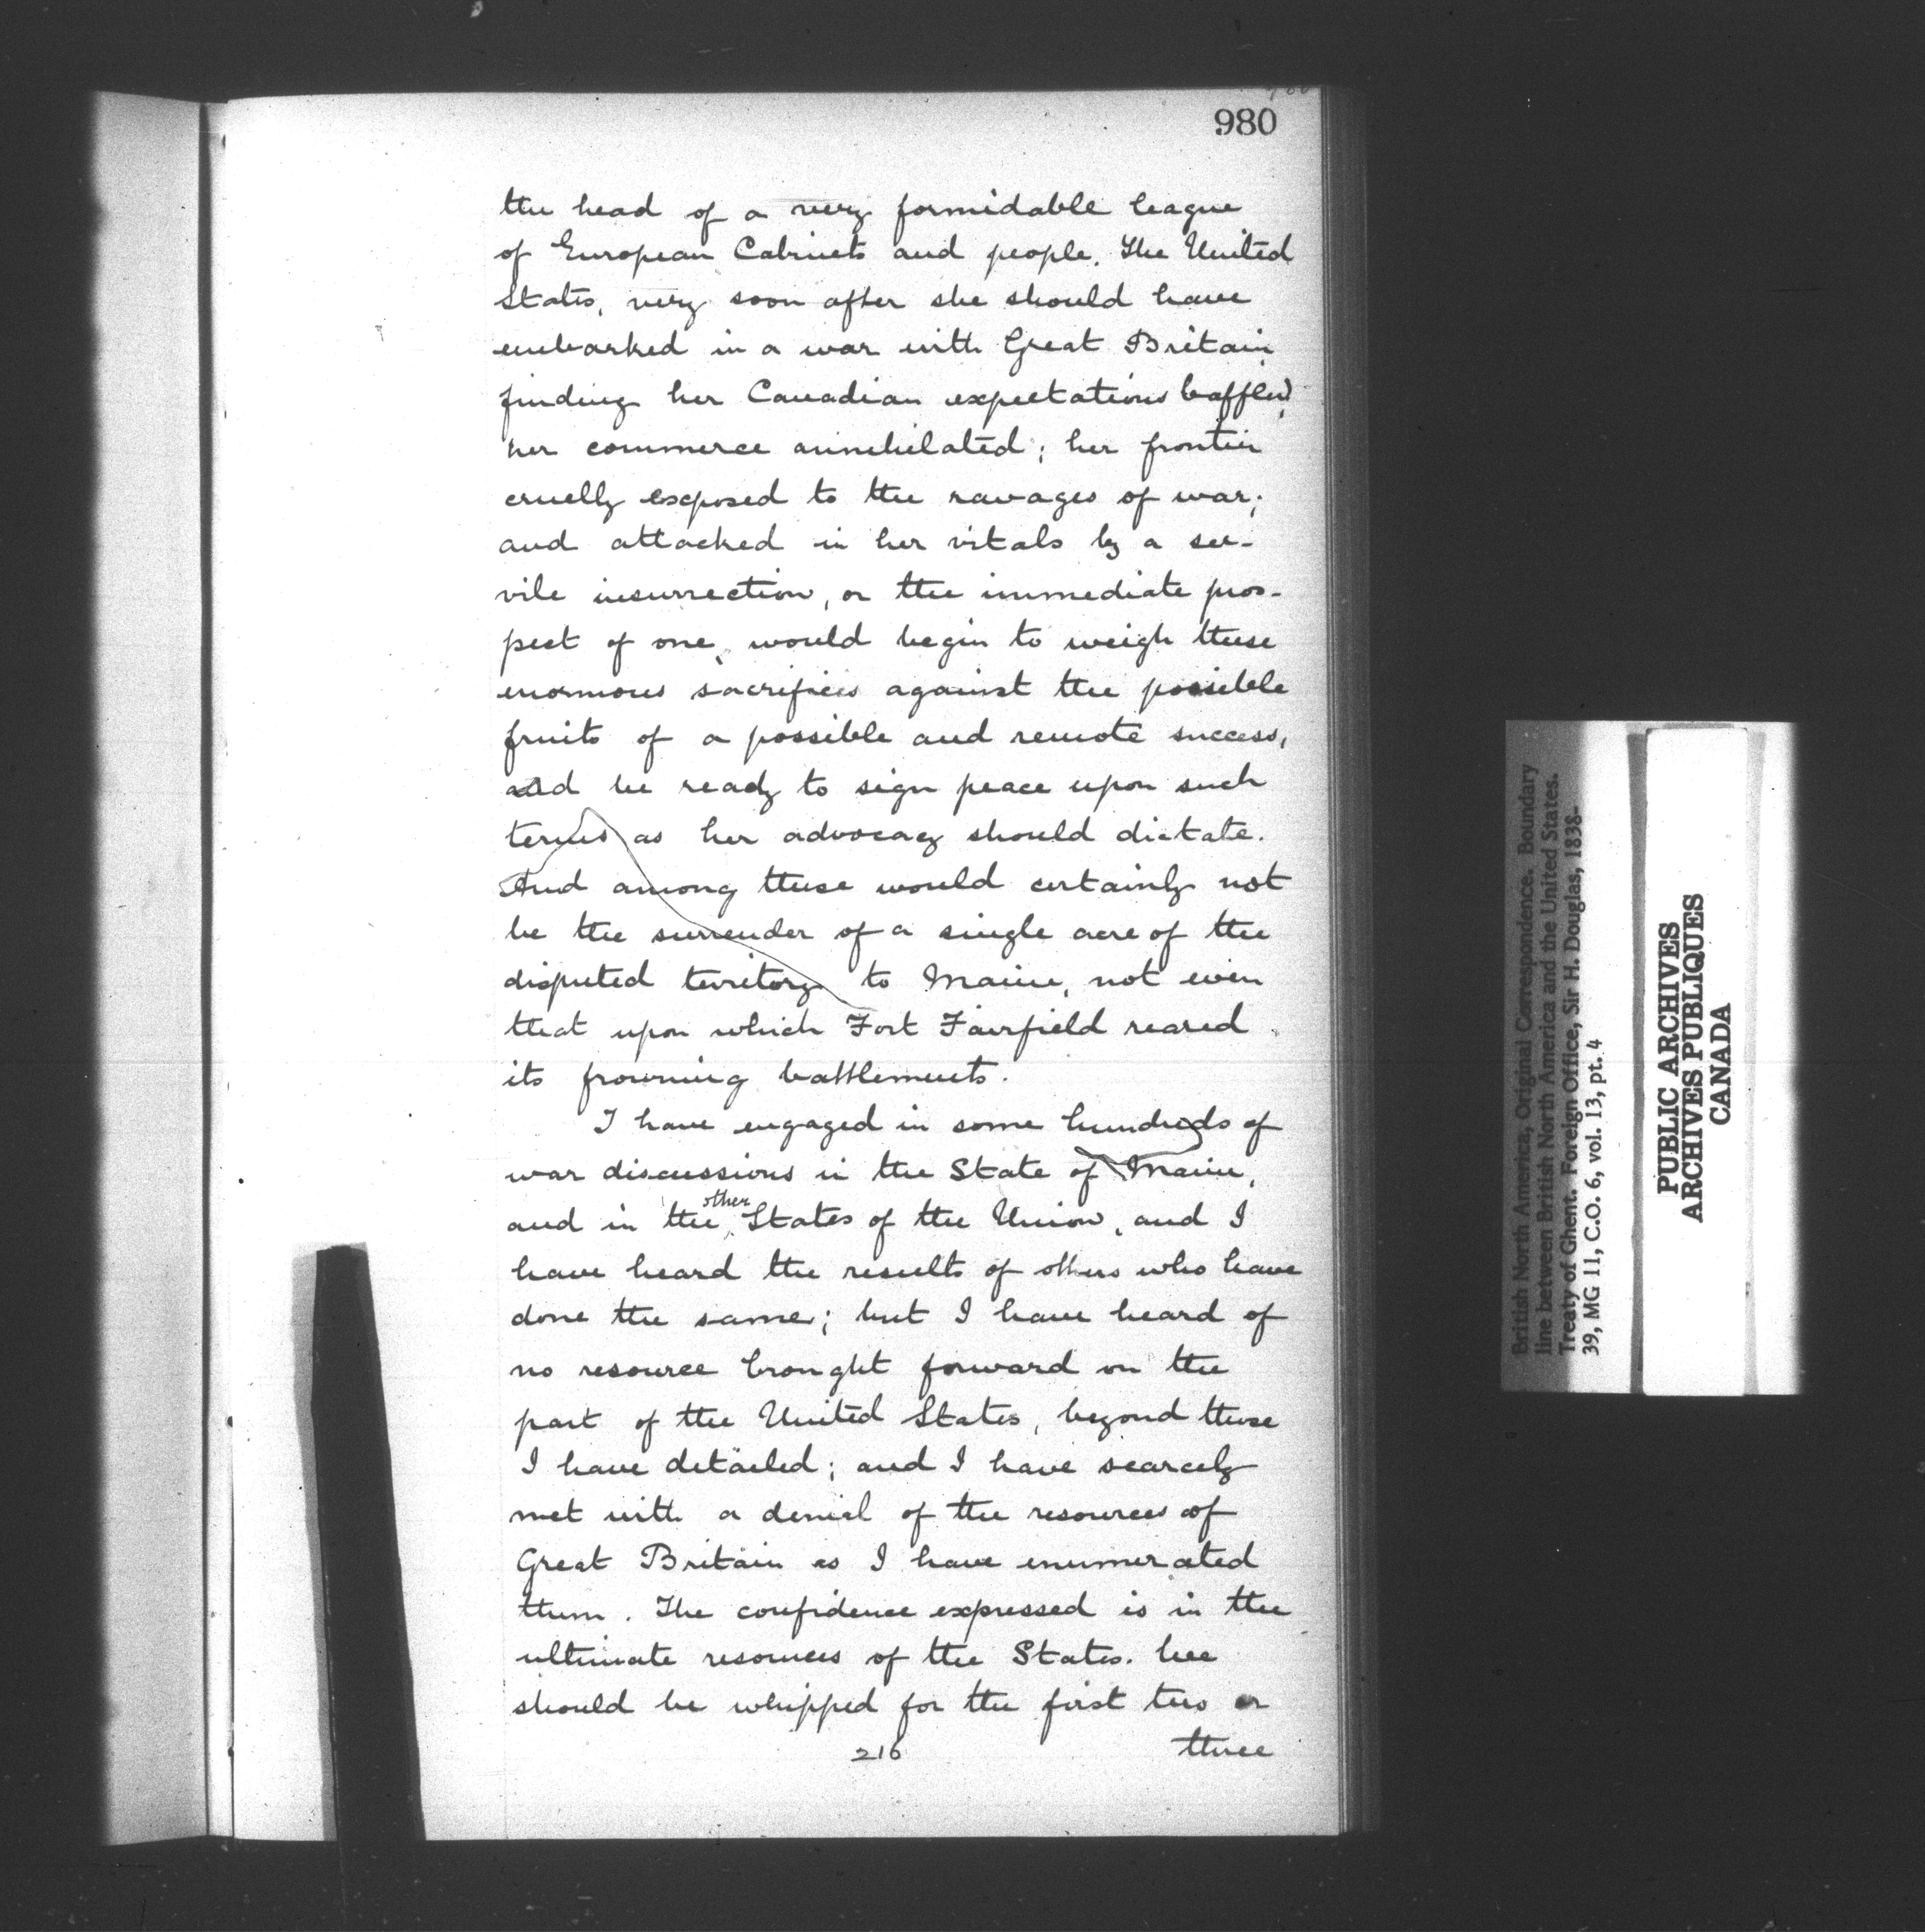 980
the head of a very formidable league
of European Cabinets and people. The United
States, very soon after she should have
embarked in a war with Great Britain,
finding her Canadian expectations baffled,
her commerce annihilated; her frontier
cruelly exposed to the ravages of war;
and attacked in her vitals by a ser-
vile insurrection, or the immediate pros-
pect of one, would begin to weigh these
enormous sacrifices against the possible
fruits of a possible and remote success,
and be ready to sign peace upon such
terms as her advocacy should dictate.
And among these would certainly not
be the surrender of a single acre of the
disputed territory to Maine, not even
that upon which Fort Fairfield reared
its frowning battlements.
I have engaged in some hundreds of
war discussions in the State of Maine,
and in the other States of the Union, and I
have heard the results of others who have
done the same; but I have heard of
no resource brought forward on the
part of the United States, beyond those
I have detailed; and I have scarcely
met with a denial of the resources of
Great Britain as I have enumerated
them. The confidence expressed is in the
ultimate resources of the States. We
should be whipped for the first two or
216 three
British North America, Original Correspondence. Boundary
line between British North America and the United States.
Treaty of Ghent. Foreign Office, Sir H. Douglas, 1838-
39, MG 11, C.O. 6, vol. 13, pt. 4
PUBLIC ARCHIVES
ARCHIVES PUBLIQUES
CANADA